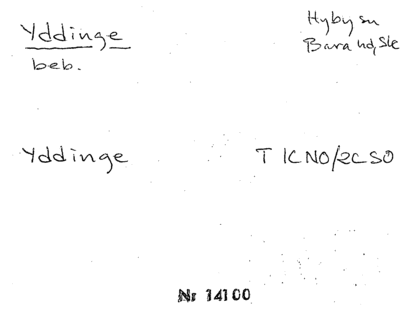 Yddinge
beb.
Hyby sn
Bara hd, Ske
Yddinge
T 1C NO/2C SO
Nr 14100